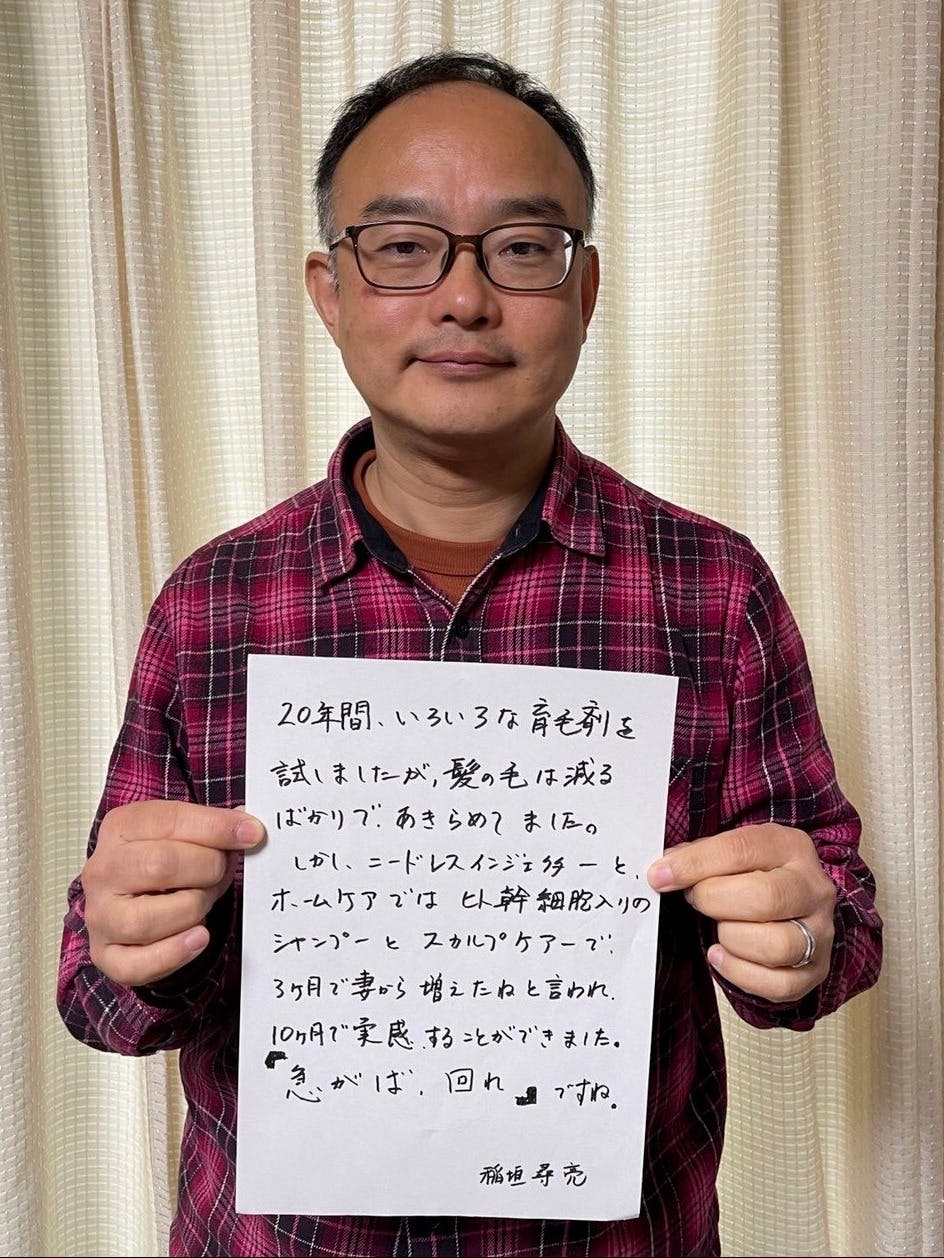 20年間、いろいろな育毛剤を
試しましたが、髪の毛は減る
ばかりで、あきらめてました。
しかし、ニードレスインジェクターと、
ホームケアでは ヒト幹細胞入りの
シャンプーと スカルプケアーで、
3ヶ月で妻から 増えたねと言われ、
10ヶ月で実感することができました。
『急がば、回れ』ですね。
稲垣尋亮